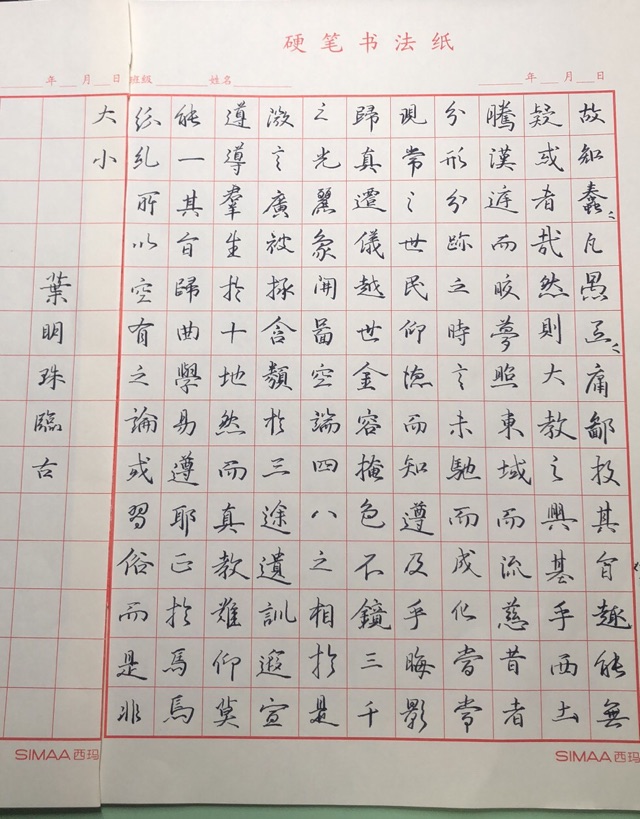 硬笔书法纸
年 月 日 班级 姓名 年 月 日
故知蠢〻凡愚區〻庸鄙投其旨趣能無
疑或者哉然則大教之興基乎西土
騰漢庭而皎夢照東域而流慈昔者
分形分跡之時言未馳而成化當常
現常之世民仰德而知遵及乎晦影
歸真遷儀越世金容掩色不鏡三千
之光麗象開圖空端四八之相於是
微言廣被拯含類於三途遺訓遐宣
遵導羣生於十地然而真教難仰莫
能一其旨歸曲學易遵耶正於焉焉
紛糾所以空有之論或習俗而是非
大小
葉明珠臨古
SIMAA西玛
SIMAA西玛